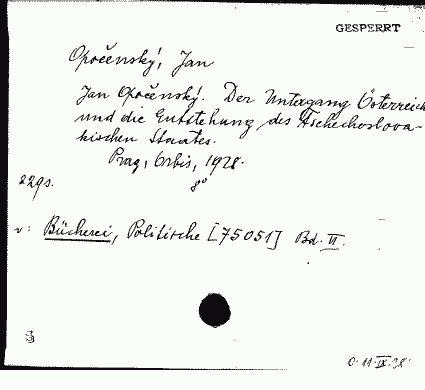 GESPERRT
Opočenský, Jan
Jan Opočenský. Der Untergang Österreich
und die Entstehung des Tschechoslova-
kischen Staates.
Prag, Orbis, 1928.
229s. 8°
v: Bücherei, Politische [75051] Bd. II.